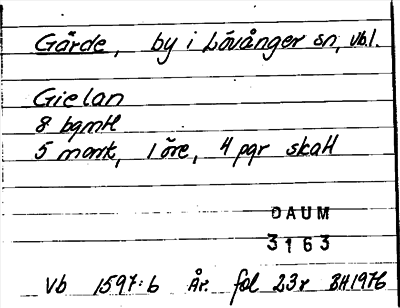 Gärde, by i Lövånger sn, vb.l.
Gielan
8 bgmtl
5 mark, 1 öre, 4 pgr skatt
DAUM
3163
Vb 1597:6 År. fol 23r BH1976